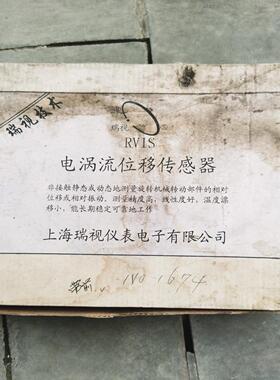 瑞视技术
瑞视
RVIS
电涡流位移传感器
非接触静态或动态地测量旋转机械转动部件的相对
位移或相对振动，测量精度高，线性度好，温度漂
移小，能长期稳定可靠地工作
上海瑞视仪表电子有限公司
1V0-1674